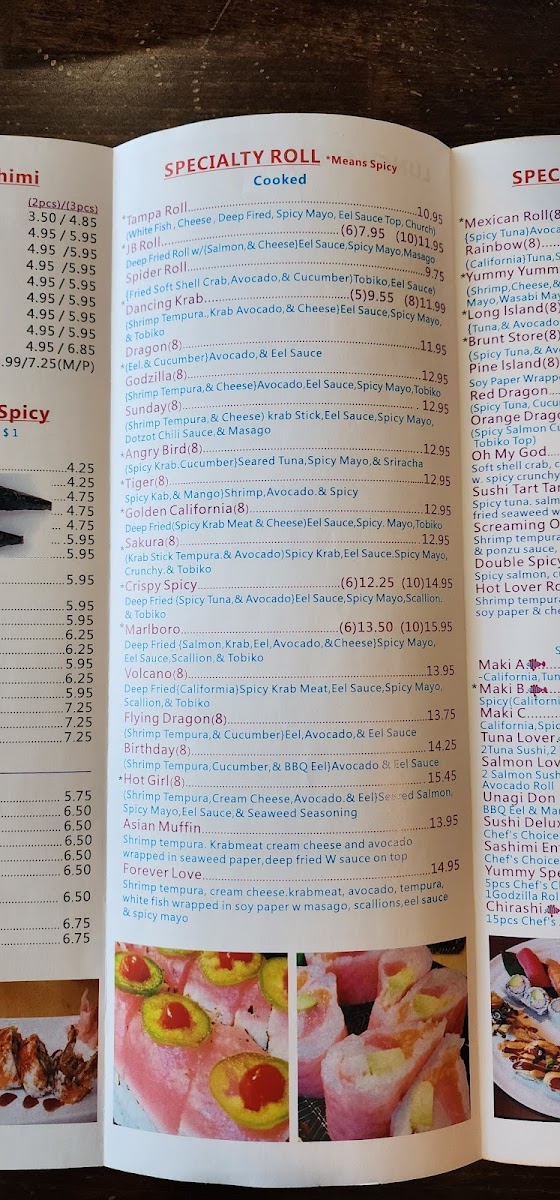 himi
(2pcs)/(3pcs)
3.50 / 4.85
4.95 / 5.95
4.95 /5.95
4.95 /5.95
4.95 / 5.95
4.95 / 5.95
4.95 / 5.95
4.95 / 5.95
4.95 / 6.85
.99/7.25(M/P)
Spicy
$ 1
4.25
4.25
4.75
4.75
4.75
5.95
5.95
5.95
5.95
5.95
6.25
6.25
5.95
6.25
5.95
7.25
7.25
7.25
5.75
6.50
6.50
6.50
6.50
6.50
6.50
6.75
6.75
SPECIALTY ROLL *Means Spicy
Cooked
*Tampa Roll 10.95
(White Fish, Cheese, Deep Fired, Spicy Mayo, Eel Sauce Top, Church)
*JB Roll (6)7.95 (10)11.95
Deep Fried Roll w/(Salmon,& Cheese)Eel Sauce,Spicy Mayo,Masago
Spider Roll 9.75
{Fried Soft Shell Crab,Avocado,& Cucumber)Tobiko,Eel Sauce)
*Dancing Krab (5)9.55 (8)11.99
(Shrimp Tempura., Krab Avocado,& Cheese)Eel Sauce,Spicy Mayo,
& Tobiko
Dragon(8) 11.95
*(Eel.& Cucumber)Avocado,& Eel Sauce
Godzilla(8) 12.95
(Shrimp Tempura,& Cheese}Avocado,Eel Sauce,Spicy Mayo,Tobiko
Sunday(8) 12.95
(Shrimp Tempura,& Cheese) krab Stick,Eel Sauce,Spicy Mayo,
Dotzot Chili Sauce.& Masago
*Angry Bird(8) 12.95
(Spicy Krab.Cucumber}Seared Tuna,Spicy Mayo,& Sriracha
*Tiger(8) 12.95
Spicy Kab,& Mango}Shrimp,Avocado.& Spicy
*Golden California(8) 12.95
Deep Fried(Spicy Krab Meat & Cheese)Eel Sauce,Spicy. Mayo,Tobiko
*Sakura(8) 12.95
(Krab Stick Tempura.& Avocado)Spicy Krab,Eel Sauce.Spicy Mayo,
Crunchy.& Tobiko
*Crispy Spicy (6)12.25 (10)14.95
Deep Fried {Spicy Tuna,& Avocado}Eel Sauce,Spicy Mayo,Scallion.
& Tobiko
*Marlboro (6)13.50 (10)15.95
Deep Fried {Salmon,Krab,Eel,Avocado,&Cheese}Spicy Mayo,
Eel Sauce,Scallion,& Tobiko
Volcano(8) 13.95
Deep Fried{California}Spicy Krab Meat,Eel Sauce,Spicy Mayo,
Scallion,& Tobiko
Flying Dragon(8) 13.75
{Shrimp Tempura,& Cucumber}Eel,Avocado,& Eel Sauce
Birthday(8) 14.25
{Shrimp Tempura,Cucumber,& BBQ Eel}Avocado & Eel Sauce
*Hot Girl(8) 15.45
{Shrimp Tempura,Cream Cheese,Avocado.& Eel}Seared Salmon,
Spicy Mayo,Eel Sauce,& Seaweed Seasoning
Asian Muffin 13.95
Shrimp tempura. Krabmeat cream cheese and avocado
wrapped in seaweed paper,deep fried W sauce on top
Forever Love 14.95
Shrimp tempura, cream cheese.krabmeat, avocado, tempura,
white fish wrapped in soy paper w masago, scallions,eel sauce
& spicy mayo
SPEC
*Mexican Roll(8
{Spicy Tuna}Avoca
Rainbow(8)
{California}Tuna,S
*Yummy Yumm
(Shrimp,Cheese,&
Mayo,Wasabi May
*Long Island(8)
{Tuna,& Avocado
*Brunt Store(8)
(Spicy Tuna,& Av
Pine Island(8)
Soy Paper Wrapp
Red Dragon
(Spicy Tuna, Cucu
Orange Drago
(Spicy Salmon Cu
Tobiko Top)
Oh My God
Soft shell crab, c
w. spicy crunchy
Sushi Tart Tar
Spicy tuna. salm
fried seaweed w
Screaming O
Shrimp tempura
& ponzu sauce,
Double Spicy
Spicy salmon, c
Hot Lover Ro
Shrimp tempura
soy paper & che
S
Maki A
-California,Tun
*Maki B
Spicy(Californi
Maki C
California,Spic
Tuna Lover
2Tuna Sushi,2
Salmon Lov
2 Salmon Sush
Avocado Roll
Unagi Don
BBQ Eel & Mar
Sushi Delux
Chef's Choice
Sashimi En
Chef's Choice
Yummy Spe
5pcs Chef's C
1Godzilla Rol
Chirashi
15pcs Chef's